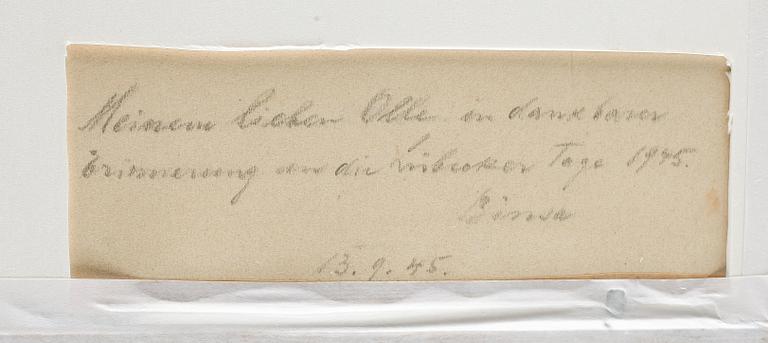 Meinem lieben Olle in dankbarer
Erinnerung an die Lübecker Tage 1945.
13.9.45.